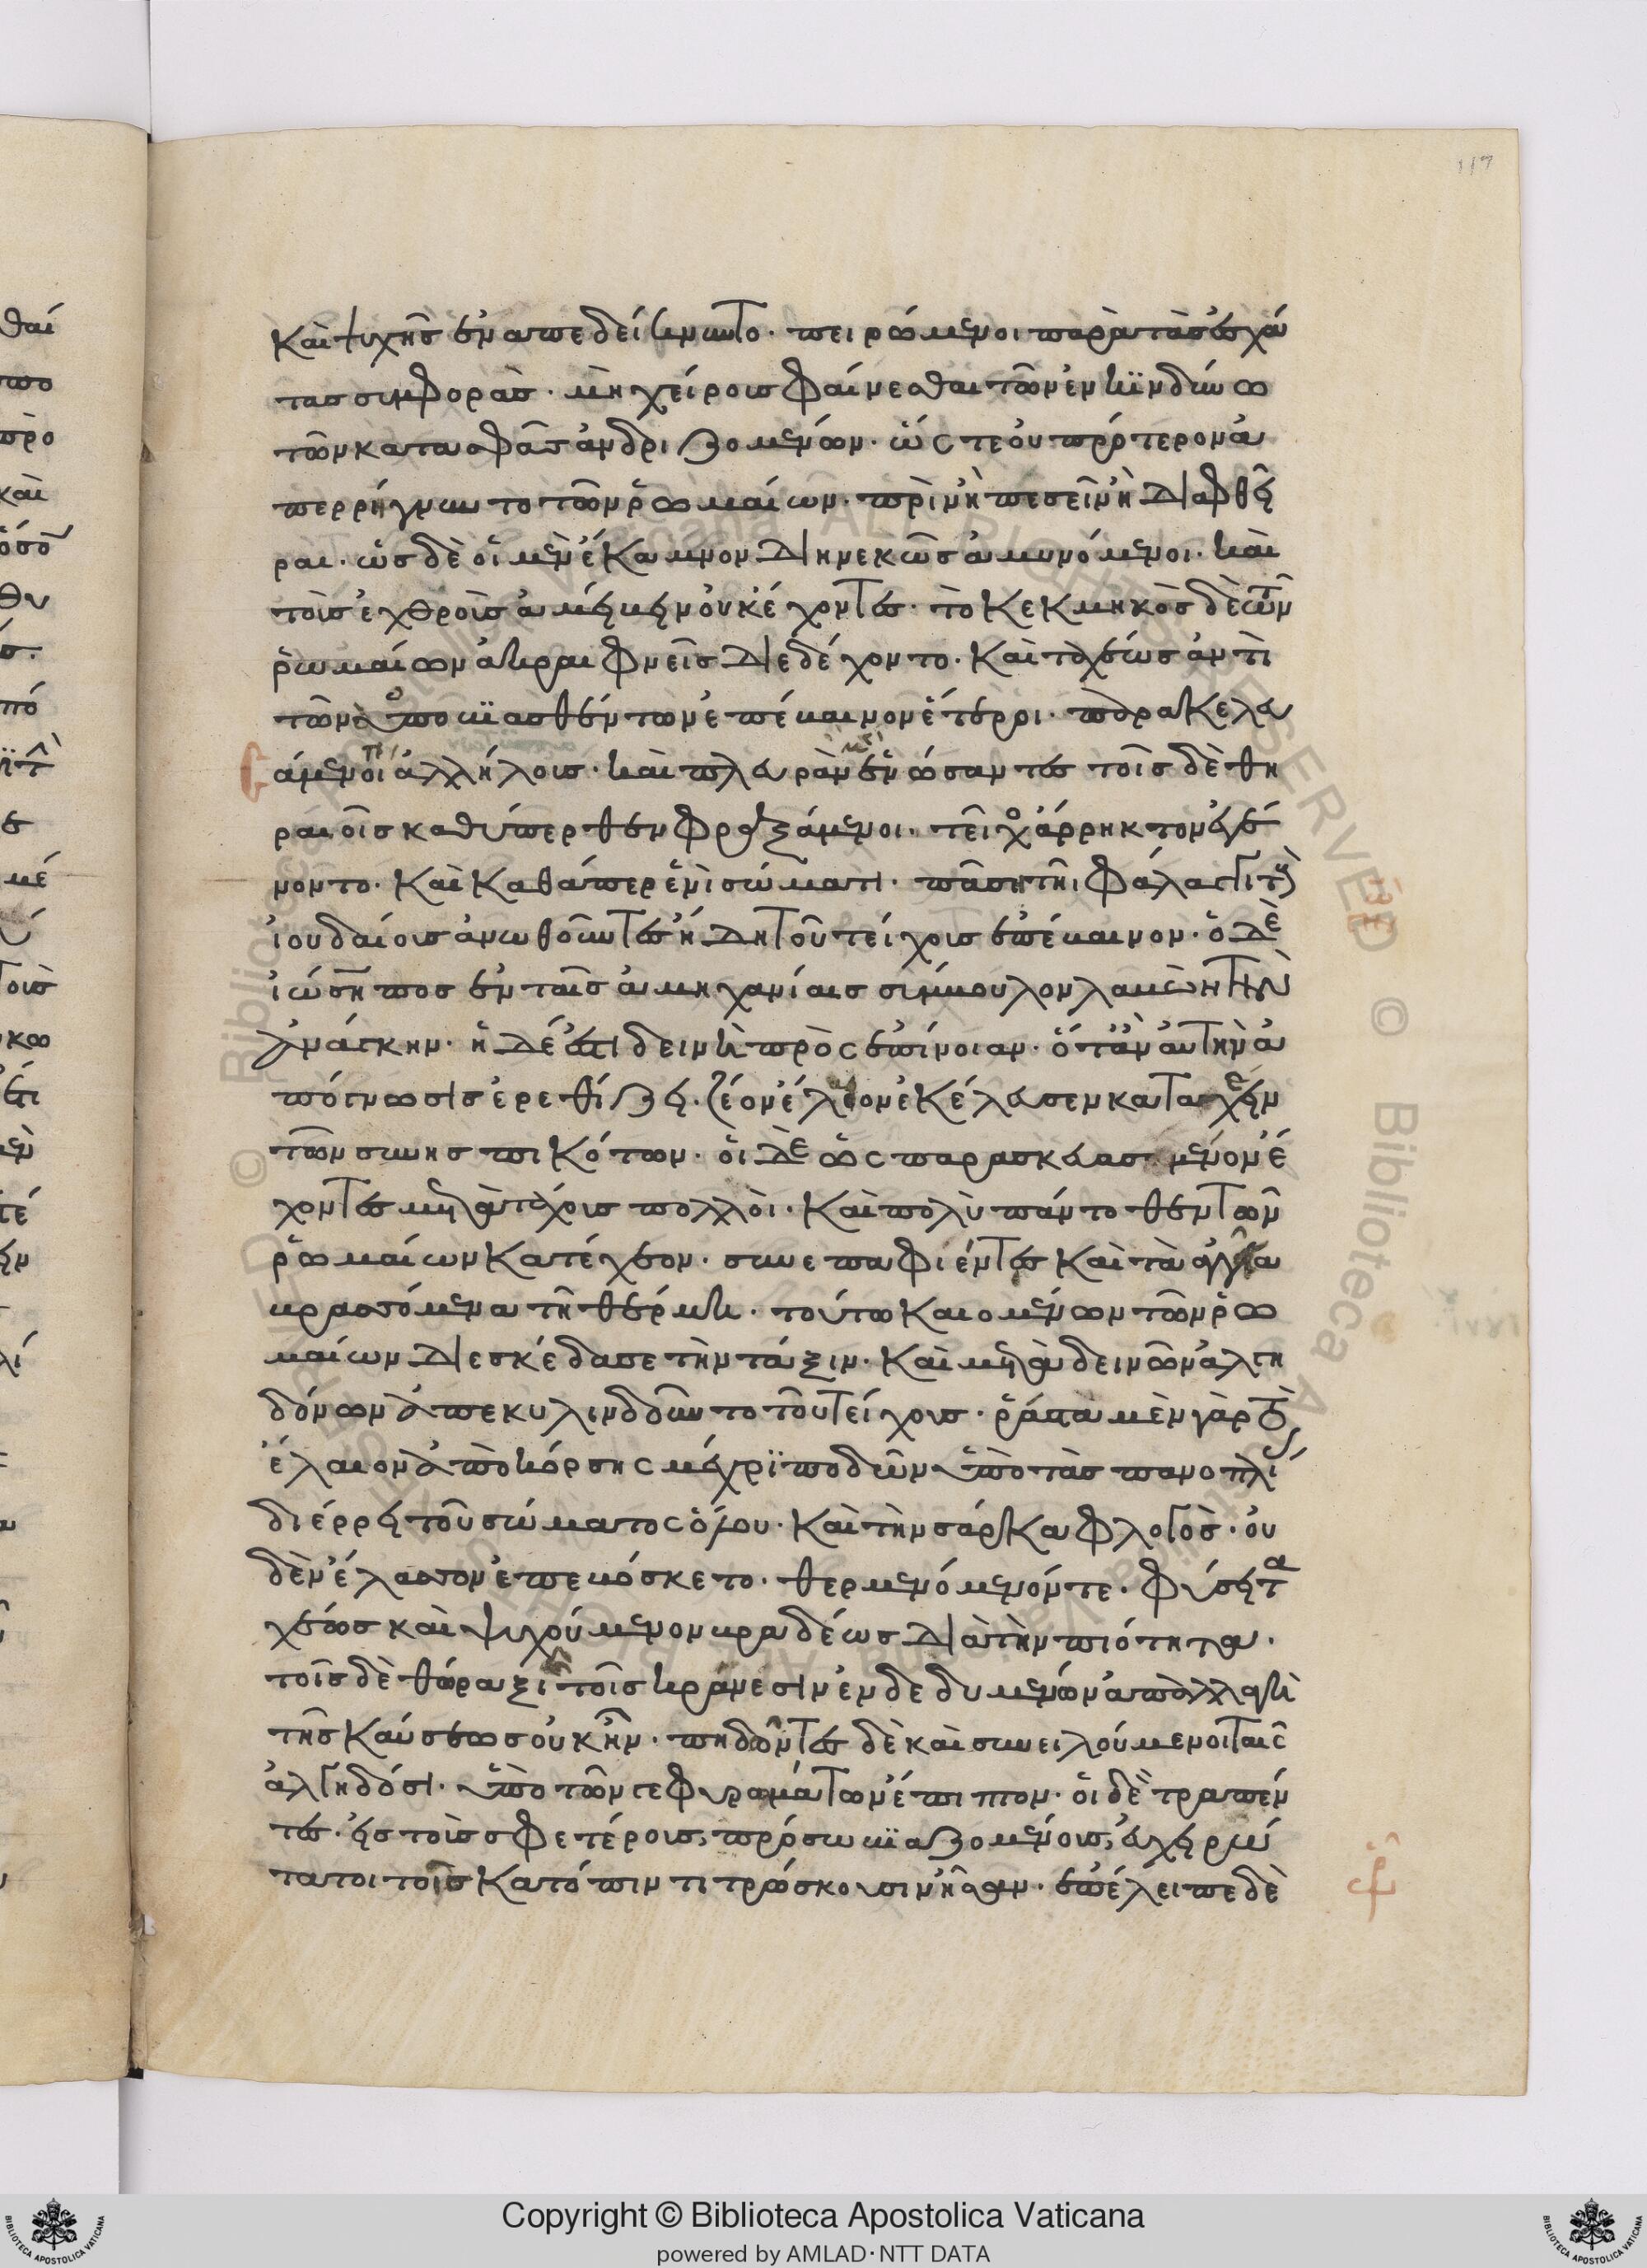 117
καὶ ψυχῆς ἐναπεδείκνυντο· πειρώμενοι παρὰ τὰς ἐσχά
τας συμφορὰς· μὴ χείρους φαίνεσθαι τῶν ἐν κινδύνω
τῶν κατα σφᾶς ἀνδριζομένων· ὥς τε οὐ πρότερον ἀ
περρήγνυντο τῶν ῥωμαίων· πρὶν ἢ πεσεῖν ἢ διαφθεῖ
ραι· ὡς δὲ οἱ μὲν ἔκαμνον διηνεκῶς ἀμυνόμενοι· καὶ
τοῖς ἐχθροῖς ἀμείβειν οὐκ ἔχοντες· τὸ κεκμηκὸς δὲ τῶν
ῥωμαίων ἀκραιφνεῖς διεδέχοντο· καὶ ταχέως ἀντὶ
τῶν ἀποβιασθέντων ἐπέβαινον ἕτεροι· παρακελευ
σάμενοι ἀλλήλοις· καὶ πλευρὰν ἑνώσαντες τοῖς δὲ θυ
ραιοῖς καθύπερθεν φραξάμενοι· στῖφος ἄρρηκτον ἐγέ
νοντο· καὶ καθάπερ ἑνὶ σώματι· πάση τῆ φάλαγγι τοὺς
ἰουδαίους ἀνωθοῦντες ἤδη τοῦ τείχους ἐπέβαινον· ὁ δὲ
ἰώσηπος ἐν ταῖς ἀμηχανίαις σύμβουλον λαβὼν τὴν
ἀνάγκην· ἡ δέ ἐστι δεινὴ πρὸς ἐπίνοιαν· ὅταν αὐτὴν ἀ
πόγνωσις ἐρεθίζει· ζέον ἔλαιον ἐκέλευσεν καταχεῖν
τῶν συνησπικότων· οἱ δὲ ὡς παρασκευασμένον ἔ
χοντες μετὰ τάχους πολλοὶ· καὶ πολὺ πάντοθεν τῶν
ῥωμαίων κατέχεον· συνεπαφιέντες καὶ τὰ ἀγγεῖα
βρασσόμενα τῆ θέρμη· τοῦτο καιομένων τῶν ῥω
μαίων διεσκέδασε τὴν τάξιν· καὶ μετὰ δεινῶν ἀλγη
δόνων ἀπεκυλινδοῦντο τοῦ τείχους· ῥᾶστα μὲν γὰρ τὸ
ἔλαιον ἀπὸ κόρσης μέχρι ποδῶν ὑπὸ τὰς πανοπλί
διέρρει τοῦ σώματος ὅλου· καὶ τὴν σάρκα φλογὸς· οὐ
δὲν ἔλασσον ἐπεβόσκετο· θερμενόμενόν τε· φύσει τα
χέως καὶ ψυχούμενον βραδέως διὰ τὴν πιότητα·
τοῖς δὲ θώραξι τοῖς κράνεσιν ἐνδεδυμένων ἀπαλλαγὴ
τῆς καύσεως οὐκ ἦν· πηδῶντες δὲ καὶ συνειλούμενοι ταῖς
ἀλγηδόσι· ὑπὸ τῶν γεφυρωμάτων ἔπιπτον· οἱ δὲ τραπέν
τες· εἰς τοὺς σφετέρους, πρόσω βιαζομένους, εὐχειρώ
τατοι τοῖς κατόπιν τιτρώσκουσιν ἦσαν· ἐπέλειπε δὲ
Copyright © Biblioteca Apostolica Vaticana
powered by AMLAD·NTT DATA